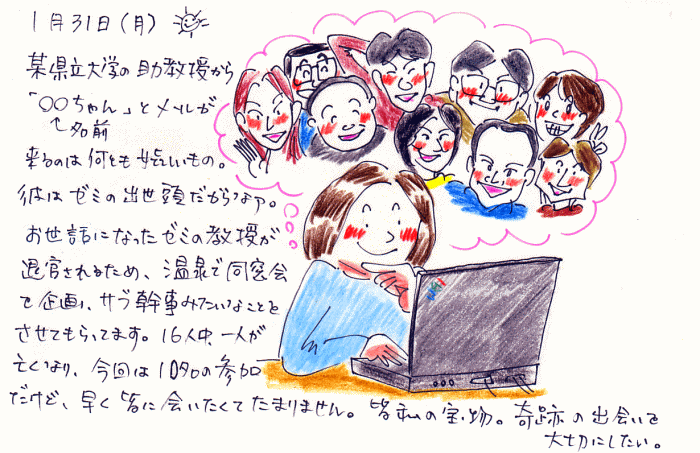 1月31日(月)
某県立大学の助教授から
「○○ちゃん」とメールが
↑名前
来るのは何とも嬉しいもの。
彼はゼミの出世頭だからなァ。
お世話になったゼミの教授が
退官されるため、温泉で同窓会
を企画し、サブ幹事みたいなことを
させてもらってます。16人中、一人が
亡くなり、今回は10名の参加
だけど、早く皆に会いたくてたまりません。皆私の宝物。奇跡の出会いを
大切にしたい。